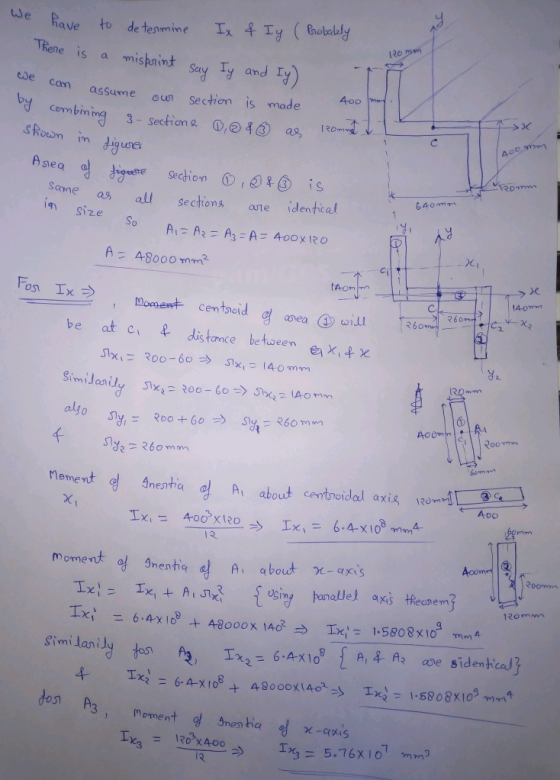 We have to determine Ix & Iy ( Probably
There is a misprint say Iy and Iy)
we can assume our section is made
by combining 3-sections ①,② & ③ as
shown in figure
Area of section ①,② & ③ is
same as all sections are identical
in size so
A₁ = A₂ = A₃ = A = 400×120
A = 48000 mm²
For Ix ⇒, centroid of area ① will
be at C₁ & distance between x₁ & x
rx₁ = 200-60 ⇒ rx₁ = 140mm
Similarily rx₂ = 200-60 ⇒ rx₂ = 140mm
also ry₁ = 200+60 ⇒ ry₁ = 260mm
& ry₂ = 260mm
Moment of Inertia of A₁ about centroidal axis
x₁
Ix₁ = 400³×120/12 ⇒ Ix₁ = 6.4×10⁸ mm⁴
Moment of Inertia of A₁ about x-axis
Ix₁' = Ix₁ + A₁rx₁² { using parallel axis theorem}
Ix₁' = 6.4×10⁸ + 48000×140² ⇒ Ix₁' = 1.5808×10⁹ mm⁴
Similarily for A₂, Ix₂ = 6.4×10⁸ { A₁ & A₂ are sidentical}
& Ix₂' = 6.4×10⁸ + 48000×140² ⇒ Ix₂' = 1.5808×10⁹ mm⁴
for A₃, moment of Inertia of x-axis
Ix₃ = 120³×400/12 ⇒ Ix₃ = 5.76×10⁷ mm³
y
120mm
400 mm
120mm
x
C
400mm
120mm
640mm
y₁
y
①
C₁
x₁
140mm
x
C
③
140mm
260mm
260mm
C₂
x₂
②
y₂
120mm
400mm
①
A₁
200mm
60mm
120mm
③
400
60mm
400mm
②
200mm
120mm